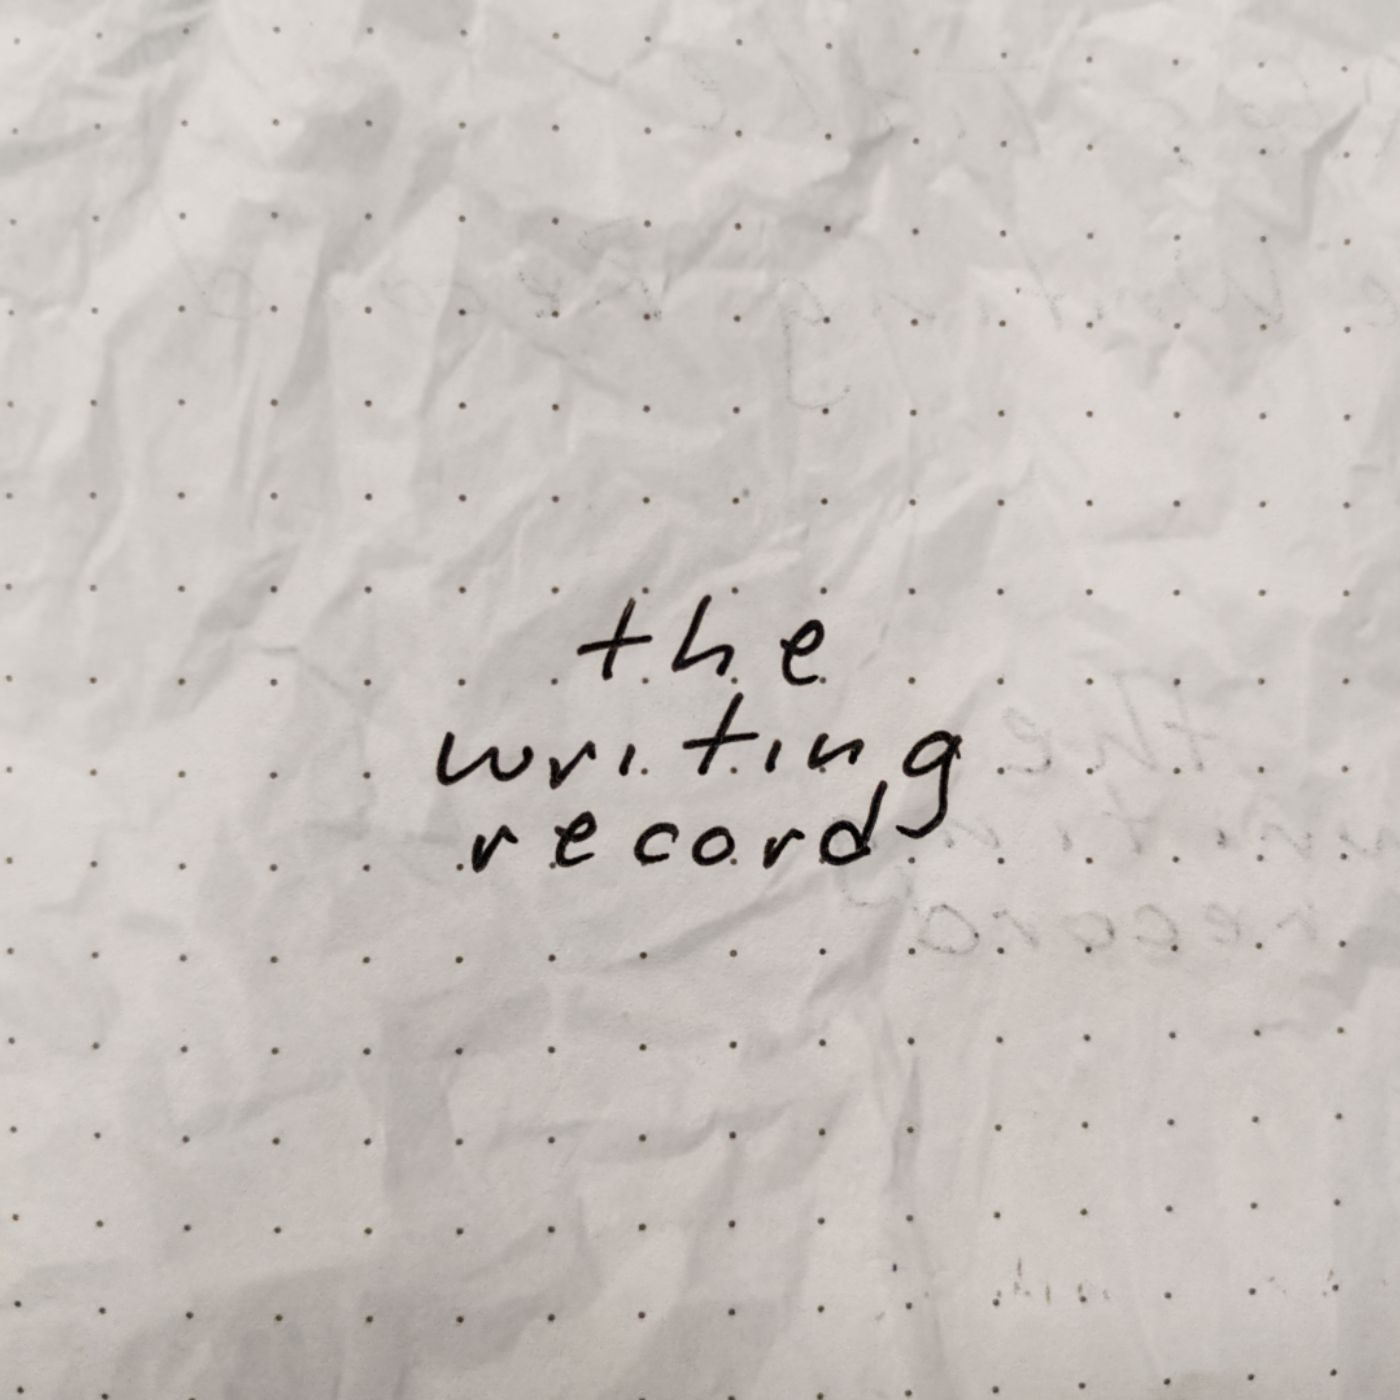 the
writing
record